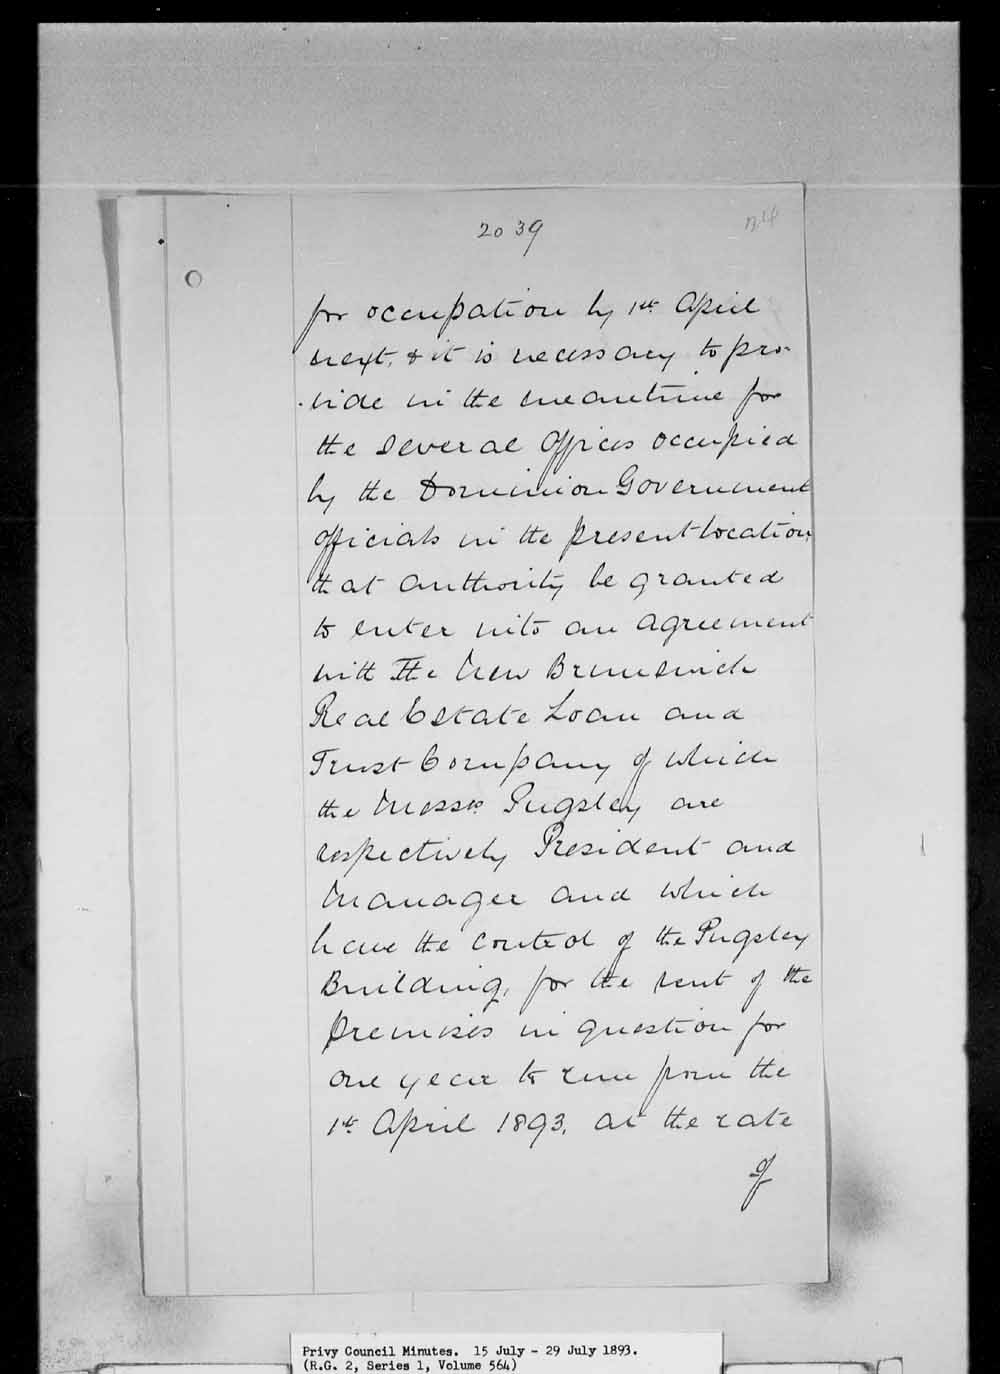 2039
for occupation by 1st April
next, & it is necessary to pro-
vide in the meantime for
the several Offices occupied
by the Dominion Government
officials in the present location,
that authority be granted
to enter into an agreement
with The New Brunswick
Real Estate Loan and
Trust Company of which
the Messrs. Pugsley are
respectively President and
Manager and which
have the control of the Pugsley
Building, for the rent of the
premises in question for
one year to run from the
1st April 1893, at the rate
of
Privy Council Minutes. 15 July - 29 July 1893.
(R.G. 2, Series 1, Volume 564)